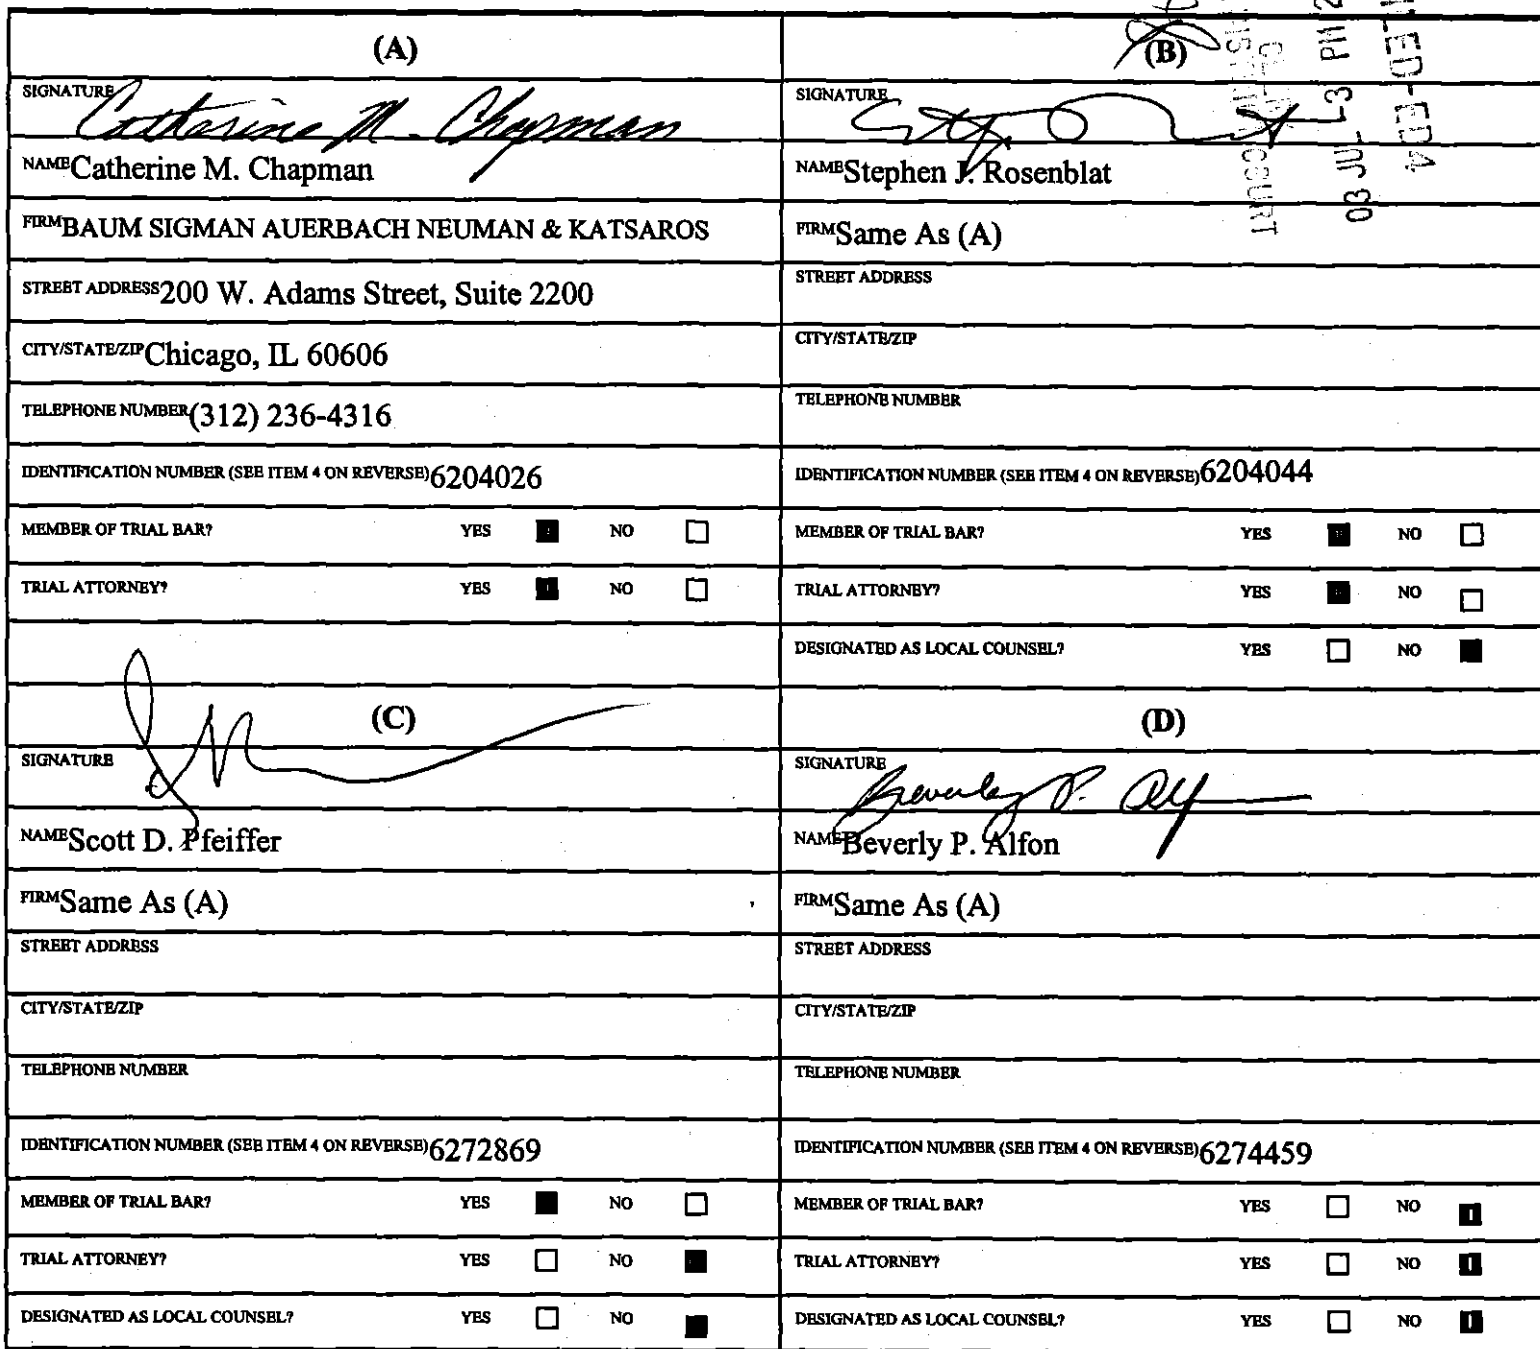 (A)
SIGNATURE Catherine M. Chapman
NAME Catherine M. Chapman
FIRM BAUM SIGMAN AUERBACH NEUMAN & KATSAROS
STREET ADDRESS 200 W. Adams Street, Suite 2200
CITY/STATE/ZIP Chicago, IL 60606
TELEPHONE NUMBER (312) 236-4316
IDENTIFICATION NUMBER (SEE ITEM 4 ON REVERSE) 6204026
MEMBER OF TRIAL BAR? YES ■ NO □
TRIAL ATTORNEY? YES ■ NO □
(B)
SIGNATURE
NAME Stephen J. Rosenblat
FIRM Same As (A)
STREET ADDRESS
CITY/STATE/ZIP
TELEPHONE NUMBER
IDENTIFICATION NUMBER (SEE ITEM 4 ON REVERSE) 6204044
MEMBER OF TRIAL BAR? YES ■ NO □
TRIAL ATTORNEY? YES ■ NO □
DESIGNATED AS LOCAL COUNSEL? YES □ NO ■
03 JUL -3 PM 2
COURT
(C)
SIGNATURE
NAME Scott D. Pfeiffer
FIRM Same As (A)
STREET ADDRESS
CITY/STATE/ZIP
TELEPHONE NUMBER
IDENTIFICATION NUMBER (SEE ITEM 4 ON REVERSE) 6272869
MEMBER OF TRIAL BAR? YES ■ NO □
TRIAL ATTORNEY? YES □ NO ■
DESIGNATED AS LOCAL COUNSEL? YES □ NO ■
(D)
SIGNATURE Beverly P. Alf
NAME Beverly P. Alfon
FIRM Same As (A)
STREET ADDRESS
CITY/STATE/ZIP
TELEPHONE NUMBER
IDENTIFICATION NUMBER (SEE ITEM 4 ON REVERSE) 6274459
MEMBER OF TRIAL BAR? YES □ NO ■
TRIAL ATTORNEY? YES □ NO ■
DESIGNATED AS LOCAL COUNSEL? YES □ NO ■